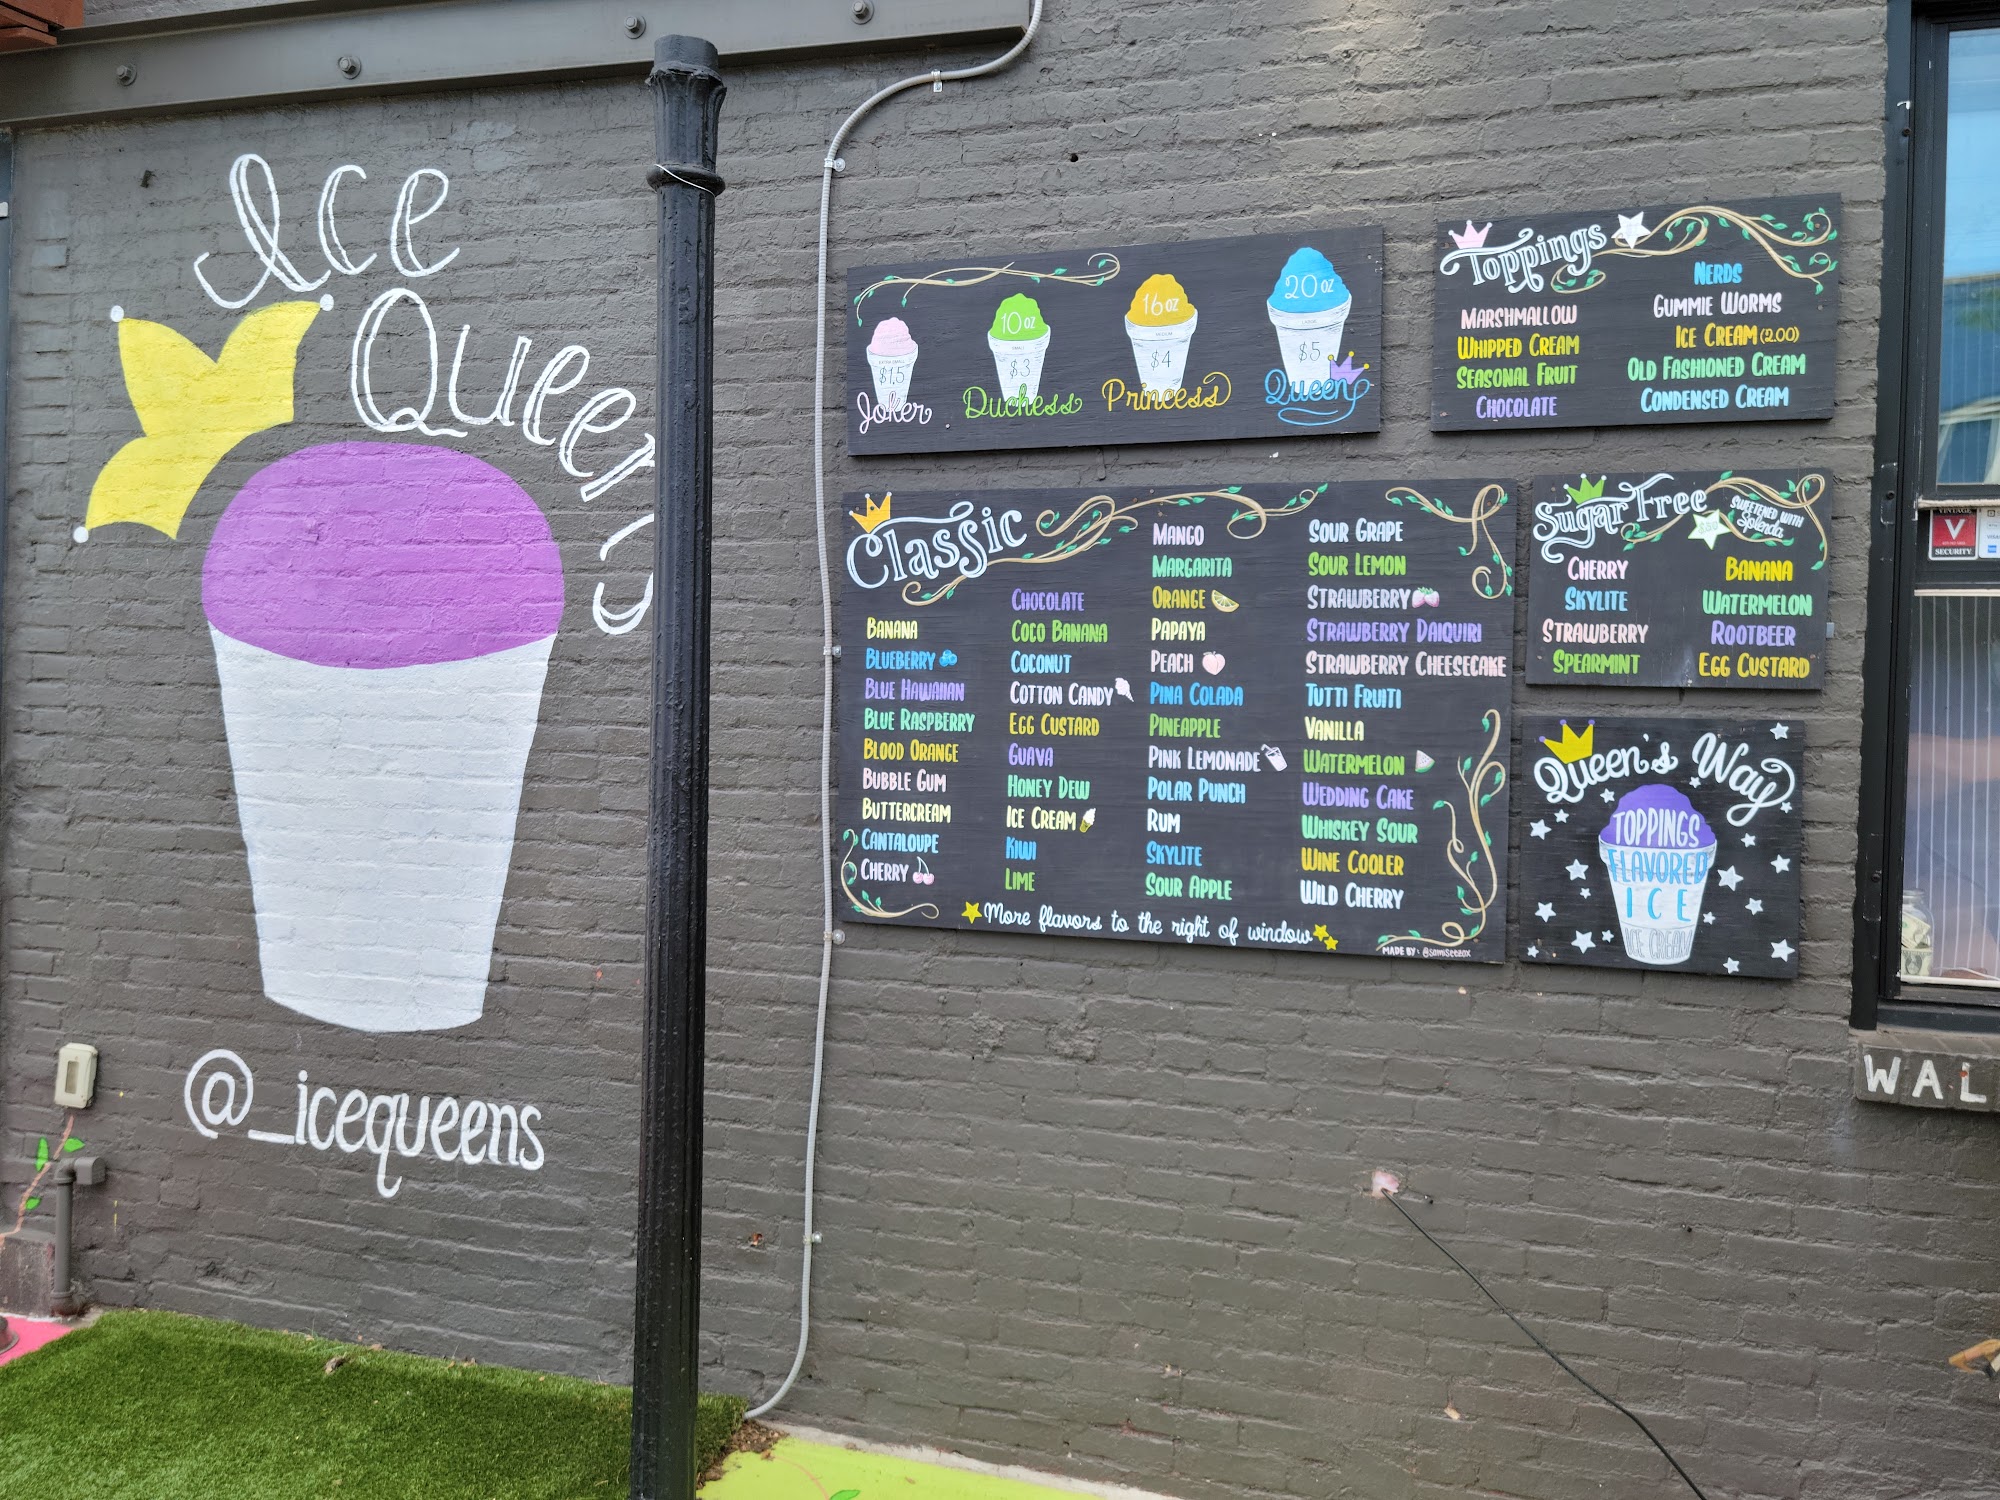 Ice
Queens
@_icequeens
20 oz
16 oz
10 oz
$1.5
$3
$4
$5
Joker
Duchess
Princess
Queen
Toppings
MARSHMALLOW
WHIPPED CREAM
SEASONAL FRUIT
CHOCOLATE
NERDS
GUMMIE WORMS
ICE CREAM (2.00)
OLD FASHIONED CREAM
CONDENSED CREAM
Classic
BANANA
BLUEBERRY
BLUE HAWAIIAN
BLUE RASPBERRY
BLOOD ORANGE
BUBBLE GUM
BUTTERCREAM
CANTALOUPE
CHERRY
CHOCOLATE
COCO BANANA
COCONUT
COTTON CANDY
EGG CUSTARD
GUAVA
HONEY DEW
ICE CREAM
KIWI
LIME
MANGO
MARGARITA
ORANGE
PAPAYA
PEACH
PINA COLADA
PINEAPPLE
PINK LEMONADE
POLAR PUNCH
RUM
SKYLITE
SOUR APPLE
SOUR GRAPE
SOUR LEMON
STRAWBERRY
STRAWBERRY DAIQUIRI
STRAWBERRY CHEESECAKE
TUTTI FRUITI
VANILLA
WATERMELON
WEDDING CAKE
WHISKEY SOUR
WINE COOLER
WILD CHERRY
More flavors to the right of window
MADE BY: @samiseezox
Sugar Free
SWEETENED WITH
Splenda
CHERRY
SKYLITE
STRAWBERRY
SPEARMINT
BANANA
WATERMELON
ROOTBEER
EGG CUSTARD
Queen's Way
TOPPINGS
FLAVORED
ICE
ICE CREAM
VINTAGE
V
SECURITY
WAL